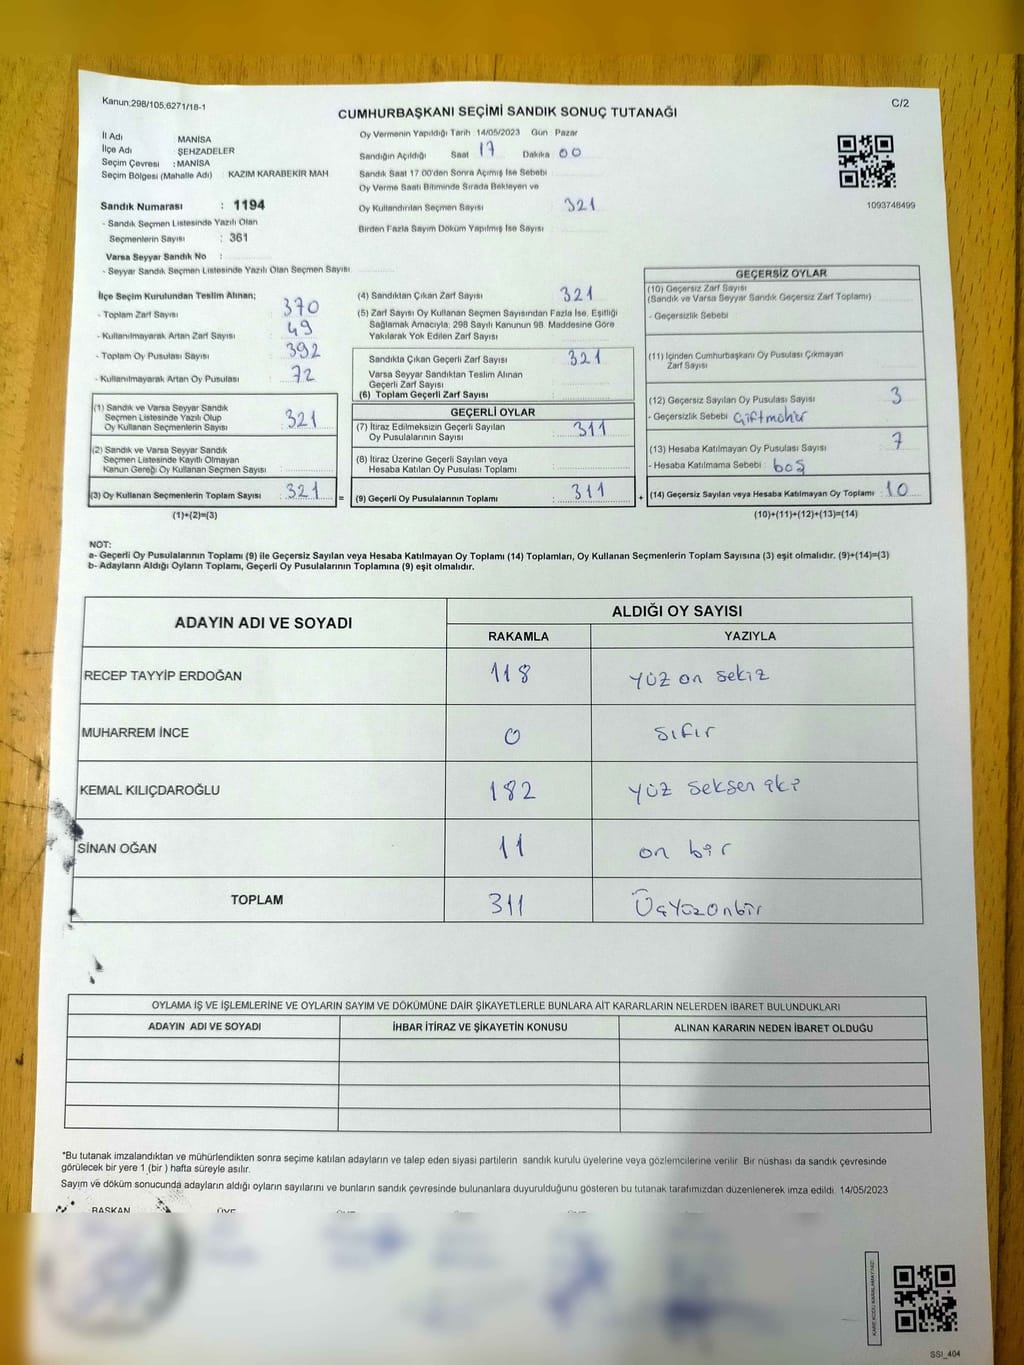 Kanun.298/105,6271/18-1
C/2
CUMHURBAŞKANI SEÇİMİ SANDIK SONUÇ TUTANAĞI
İl Adı MANİSA
İlçe Adı ŞEHZADELER
Seçim Çevresi : MANİSA
Seçim Bölgesi (Mahalle Adı) : KAZIM KARABEKİR MAH
Sandık Numarası : 1194
- Sandık Seçmen Listesinde Yazılı Olan
Seçmenlerin Sayısı : 361
Varsa Seyyar Sandık No :
- Seyyar Sandık Seçmen Listesinde Yazılı Olan Seçmen Sayısı
Oy Vermenin Yapıldığı Tarih 14/05/2023 Gün Pazar
Sandığın Açıldığı Saat 17 Dakika 00
Sandık Saat 17 00'den Sonra Açımış İse Sebebi
Oy Verme Saati Bitiminde Sırada Bekleyen ve
Oy Kullandırılan Seçmen Sayısı 321
Birden Fazla Sayım Döküm Yapılmış İse Sayısı
1093748499
İlçe Seçim Kurulundan Teslim Alınan;
- Toplam Zarf Sayısı : 370
- Kullanılmayarak Artan Zarf Sayısı : 49
- Toplam Oy Pusulası Sayısı : 392
- Kullanılmayarak Artan Oy Pusulası : 72
(1) Sandık ve Varsa Seyyar Sandık
Seçmen Listesinde Yazılı Olup
Oy Kullanan Seçmenlerin Sayısı : 321
(2) Sandık ve Varsa Seyyar Sandık
Seçmen Listesinde Kayıtlı Olmayan
Kanun Gereği Oy Kullanan Seçmen Sayısı :
(3) Oy Kullanan Seçmenlerin Toplam Sayısı : 321
(1)+(2)=(3)
(4) Sandıktan Çıkan Zarf Sayısı 321
(5) Zarf Sayısı Oy Kullanan Seçmen Sayısından Fazla İse, Eşitliği
Sağlamak Amacıyla; 298 Sayılı Kanunun 98. Maddesine Göre
Yakılarak Yok Edilen Zarf Sayısı
Sandıkta Çıkan Geçerli Zarf Sayısı 321
Varsa Seyyar Sandıktan Teslim Alınan
Geçerli Zarf Sayısı
(6) Toplam Geçerli Zarf Sayısı
GEÇERLİ OYLAR
(7) İtiraz Edilmeksizin Geçerli Sayılan
Oy Pusulalarının Sayısı : 311
(8) İtiraz Üzerine Geçerli Sayılan veya
Hesaba Katılan Oy Pusulası Toplamı
= (9) Geçerli Oy Pusulalarının Toplamı : 311
GEÇERSİZ OYLAR
(10) Geçersiz Zarf Sayısı
(Sandık ve Varsa Seyyar Sandık Geçersiz Zarf Toplamı)
- Geçersizlik Sebebi
(11) İçinden Cumhurbaşkanı Oy Pusulası Çıkmayan
Zarf Sayısı
(12) Geçersiz Sayılan Oy Pusulası Sayısı 3
- Geçersizlik Sebebi
(13) Hesaba Katılmayan Oy Pusulası Sayısı 7
- Hesaba Katılmama Sebebi : boş
+ (14) Geçersiz Sayılan veya Hesaba Katılmayan Oy Toplamı : 10
(10)+(11)+(12)+(13)=(14)
NOT:
a- Geçerli Oy Pusulalarının Toplamı (9) ile Geçersiz Sayılan veya Hesaba Katılmayan Oy Toplamı (14) Toplamları, Oy Kullanan Seçmenlerin Toplam Sayısına (3) eşit olmalıdır. (9)+(14)=(3)
b- Adayların Aldığı Oyların Toplamı, Geçerli Oy Pusulalarının Toplamına (9) eşit olmalıdır.
ADAYIN ADI VE SOYADI
ALDIĞI OY SAYISI
RAKAMLA YAZIYLA
RECEP TAYYİP ERDOĞAN 118 yüz on sekiz
MUHARREM İNCE 0 sıfır
KEMAL KILIÇDAROĞLU 182 yüz seksen iki
SİNAN OĞAN 11 on bir
TOPLAM 311 Üçyüzonbir
OYLAMA İŞ VE İŞLEMLERİNE VE OYLARIN SAYIM VE DÖKÜMÜNE DAİR ŞİKAYETLERLE BUNLARA AİT KARARLARIN NELERDEN İBARET BULUNDUKLARI
ADAYIN ADI VE SOYADI İHBAR İTİRAZ VE ŞİKAYETİN KONUSU ALINAN KARARIN NEDEN İBARET OLDUĞU
*Bu tutanak imzalandıktan ve mühürlendikten sonra seçime katılan adayların ve talep eden siyasi partilerin sandık kurulu üyelerine veya gözlemcilerine verilir. Bir nüshası da sandık çevresinde
görülecek bir yere 1 (bir ) hafta süreyle asılır.
Sayım ve döküm sonucunda adayların aldığı oyların sayılarını ve bunların sandık çevresinde bulunanlara duyurulduğunu gösteren bu tutanak tarafımızdan düzenlenerek imza edildi. 14/05/2023
BAŞKAN ÜYE
SSI_404